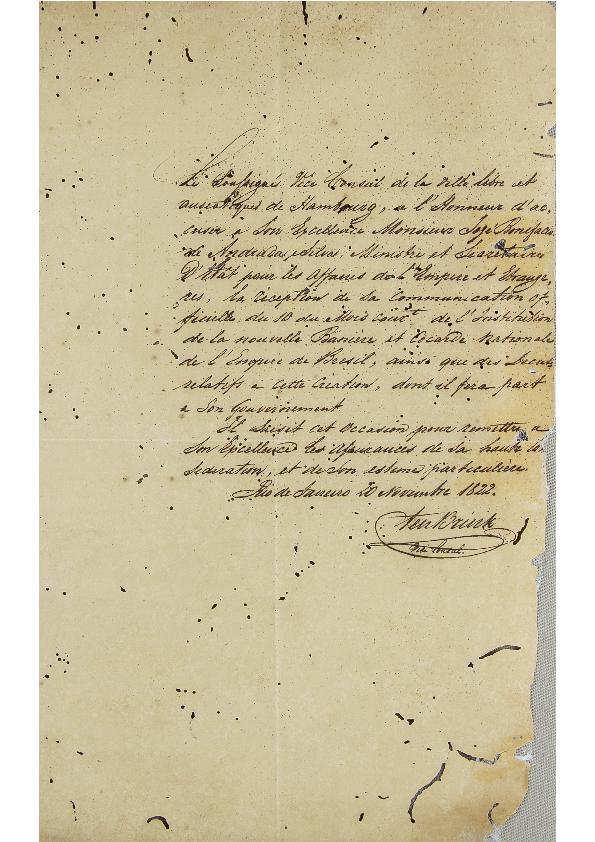 Le Soussigné Vice Consul de la Ville libre et
anseatique de Hambourg, a l'Honneur d'ac-
cuser à Son Excellence Monsieur Joze Bonifacio
de Andrada e Silva, Ministre et Secretaire
D'Etat pour les Affaires de l'Empire et Etrange-
res, la reception de sa Communication of-
ficielle du 10 du Mois Cour.t de l'Institution
de la nouvelle Baniere et Cocarde Nationale
de l'Empire de Bresil, ainsi que des Decrets
relatifs a cette Creation, dont il fera part
a Son Gouvernement.
Il Saisit cet Occasion pour remettre a
Son Excellence les assurances de sa haute Con-
sideration, et de son estime particuliere.
Rio de Janeiro 20 Novembre 1822.
ten Brink
Vice Consul.